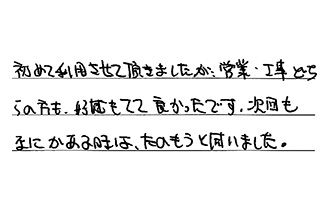 初めて利用させて頂きましたが、営業・工事どち
らの方も、好感もてて良かったです。次回も
なにかある時は、たのもうと思いました。